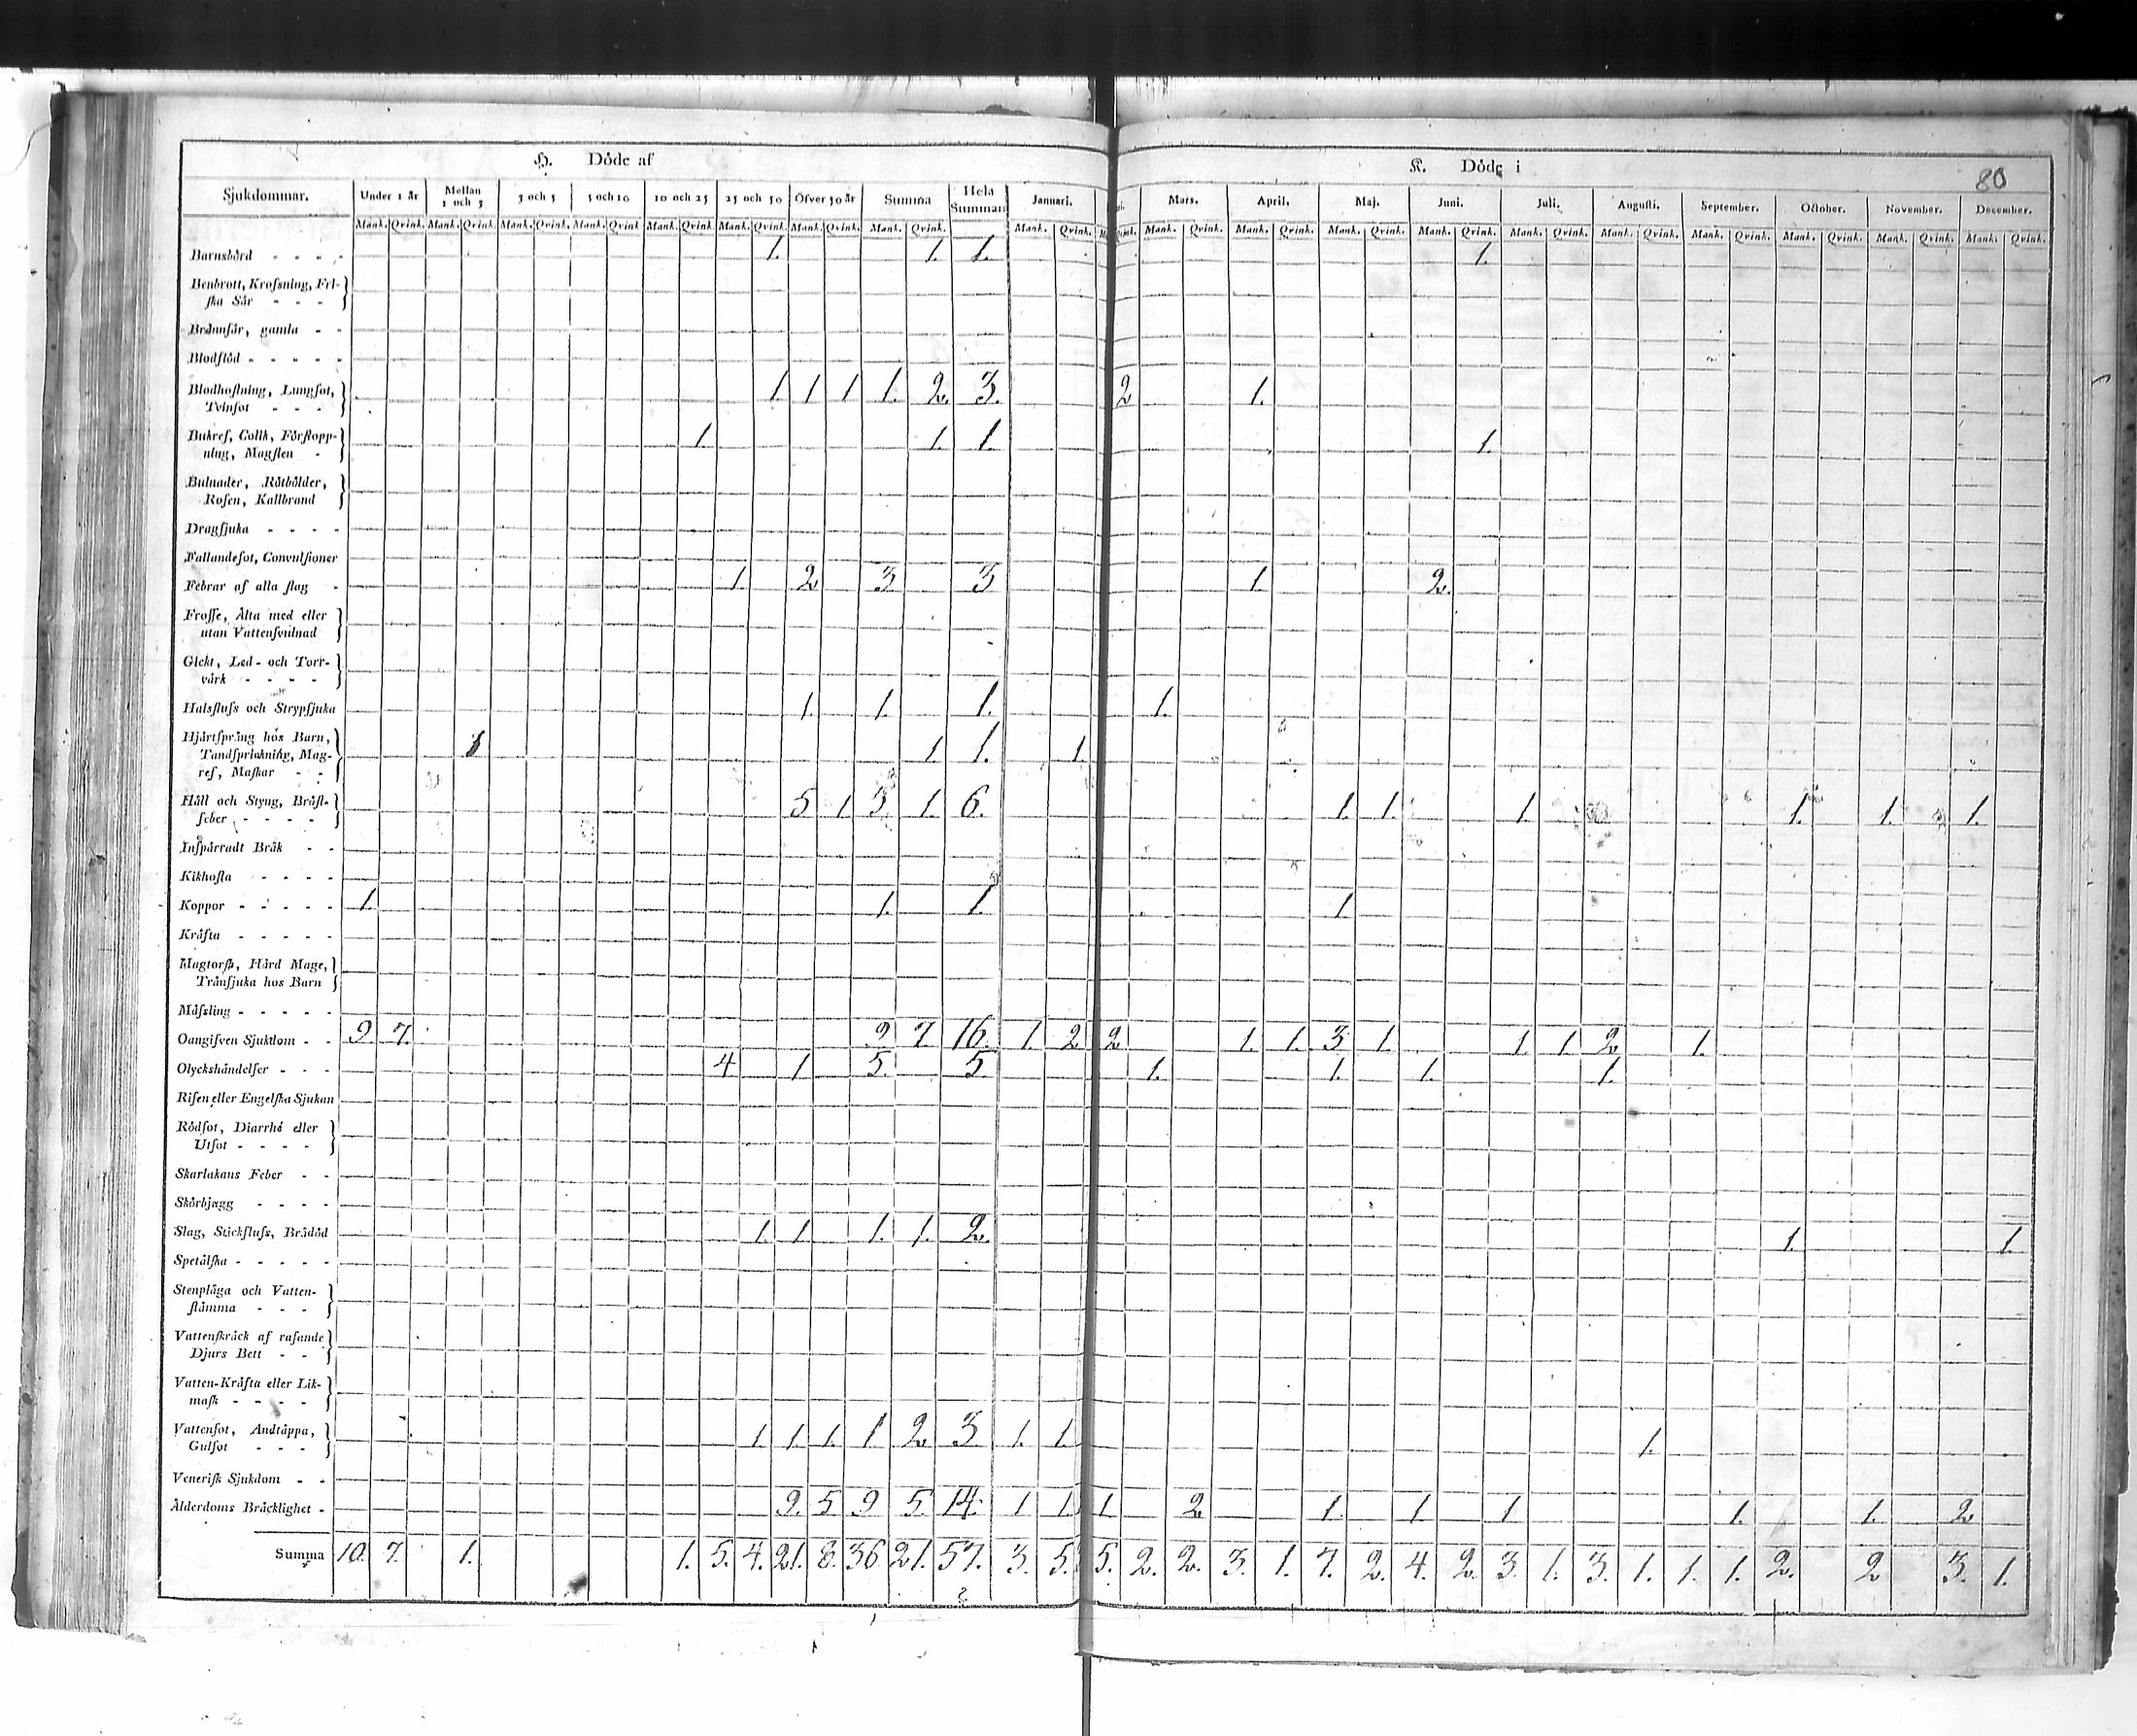 H. Döde af
K. Döde i
80
Sjukdommar. Under 1 år Mellan 1 och 3 3 och 5 5 och 10 10 och 25 25 och 50 Öfver 50 år Summa Hela Summan Januari. Mars. April. Maj. Juni. Juli. Augusti. September. October. November. December.
Mank. Qvink. Mank. Qvink. Mank. Qvink. Mank. Qvink. Mank. Qvink. Mank. Qvink. Mank. Qvink. Mank. Qvink. Mank. Qvink. Qvink. Mank. Qvink. Mank. Qvink. Mank. Qvink. Mank. Qvink. Mank. Qvink. Mank. Qvink. Mank. Qvink. Mank. Qvink. Mank. Qvink. Mank. Qvink.
Barnsbörd - - - - 1. 1. 1. 1.
Benbrott, Krofsning, Fri-
ſka Sår - - -
Brännſår, gamla - -
Blodſlöd - - - - -
Blodhoſtning, Lungſot,
Tvinſot - - - 1. 1 1 1. 2. 3. 2 1.
Bukref, Colik, Förſtopp-
ning, Magſten - 1. 1. 1. 1.
Bulnader, Rötbölder,
Roſen, Kallbrand
Dragſjuka - - - -
Fallandeſot, Convulſioner
Febrar af alla ſlag - 1. 2 3 3 1. 2.
Froſſe, Älta med eller
utan Vattenſvulnad
Gickt, Led- och Torr-
värk - - - -
Halsfluſs och Strypſjuka 1. 1. 1. 1.
Hjärtſprång hos Barn,
Tandſprickning, Mag-
ref, Maſkar - - 1 1 1. 1.
Håll och Styng, Bröſt-
feber - - - - 5 1 5 1. 6. 1. 1. 1. 1. 1. 1.
Inſpärradt Bråk - -
Kikhoſta - - - -
Koppor - - - - - 1. 1. 1. 1
Kräfta - - - - -
Magtorſk, Hård Mage,
Trånſjuka hos Barn
Mäſsling - - - - -
Oangifven Sjukdom - - 9. 7. 9 7 16. 1. 2 2 1. 1. 3 1. 1. 1. 2 1.
Olyckshändelſer - - - 4 1 5. 5 1. 1. 1. 1.
Riſen eller Engelſka Sjukan
Rödſot, Diarrhé eller
Utſot - - - -
Skarlakans Feber - -
Skörbjugg - - - -
Slag, Stickfluſs, Brådöd 1. 1. 1. 1. 2. 1. 1.
Spetälſka - - - - -
Stenplåga och Vatten-
ſtämma - - -
Vattenſkräck af raſande
Djurs Bett - -
Vatten-Kräfta eller Lik-
maſk - - - -
Vattenſot, Andtäppa,
Gulſot - - - 1. 1. 1. 1 2. 3. 1. 1. 1.
Veneriſk Sjukdom - -
Ålderdoms Bräcklighet - 9. 5 9 5. 14. 1 1. 1. 2 1. 1 1 1. 1. 2
Summa 10. 7. 1. 1. 5. 4. 21. 8. 36 21. 57. 3. 5. 5. 2. 2. 3. 1. 7. 2. 4. 2. 3. 1. 3. 1. 1. 1. 2. 2 3. 1.